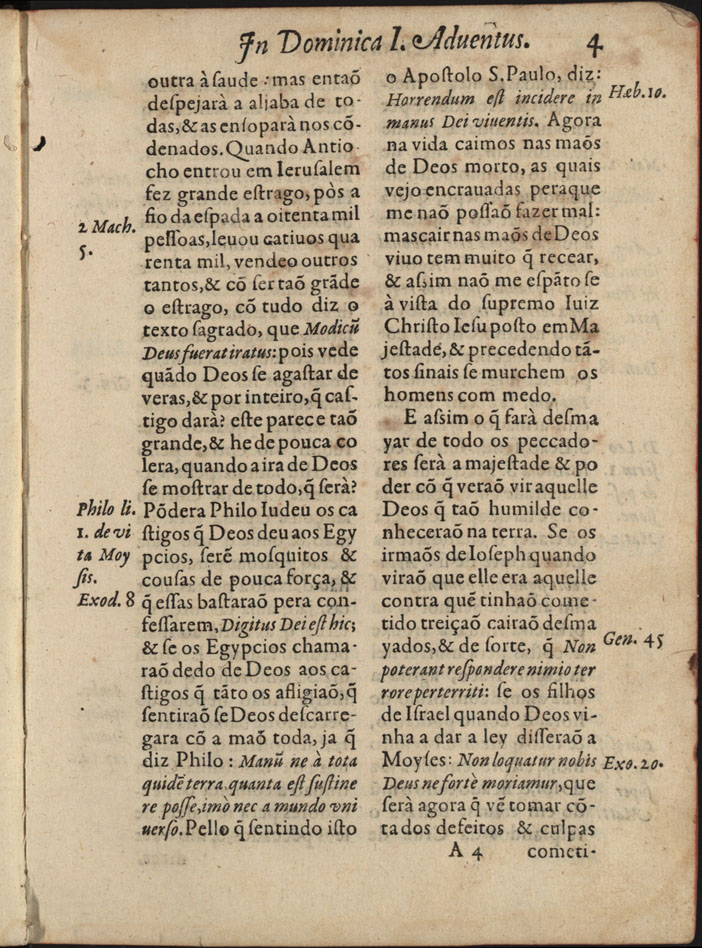 In Dominica I. Aduentus. 4
outra à ſaude : mas entaõ
deſpejarà a aljaba de to-
das, & as enſoparà nos cõ-
denados. Quando Antio-
cho entrou em Ieruſalem
fez grande eſtrago, pòs a
2 Mach. 5.
fio da eſpada a oitenta mil
peſſoas, leuou catiuos qua
renta mil, vendeo outros
tantos, & cõ ſer taõ grãde
o eſtrago, cõ tudo diz o
texto ſagrado, que Modicũ
Deus fuerat iratus: pois vede
quãdo Deos ſe agaſtar de
veras, & por inteiro, q̃ caſ-
tigo darà? eſte parece taõ
grande, & he de pouca co
lera, quando a ira de Deos
ſe moſtrar de todo, q̃ ſerà?
Philo li.
1. de vi
ta Moy
ſis.
Exod. 8
Põdera Philo Iudeu os ca
ſtigos q̃ Deos deu aos Egy
pcios, ſerẽ moſquitos &
couſas de pouca força, &
q̃ eſſas baſtaraõ pera con-
feſſarem, Digitus Dei eſt hic;
& ſe os Egypcios chama-
raõ dedo de Deos aos ca-
ſtigos q̃ tãto os afligiaõ, q̃
ſentiraõ ſe Deos deſcarre-
gara cõ a maõ toda, ja q̃
diz Philo : Manũ ne à tota
quidẽ terra, quanta eſt ſuſtine
re poſſe, imò nec a mundo vni
uerſo. Pello q̃ ſentindo iſto
o Apoſtolo S. Paulo, diz:
Hæb. 10.
Horrendum eſt incidere in
manus Dei viuentis. Agora
na vida caimos nas maõs
de Deos morto, as quais
vejo encrauadas peraque
me naõ poſſaõ fazer mal:
mas cair nas maõs de Deos
viuo tem muito q̃ recear,
& aſsim naõ me eſpãto ſe
à viſta do ſupremo Iuiz
Chriſto Ieſu poſto em Ma
jeſtade, & precedendo tã-
tos ſinais ſe murchem os
homens com medo.
E aſsim o q̃ farà deſma
yar de todo os peccado-
res ſerà a majeſtade & po
der cõ q̃ veraõ vir aquelle
Deos q̃ taõ humilde co-
nheceraõ na terra. Se os
irmaõs de Ioſeph quando
viraõ que elle era aquelle
contra quẽ tinhaõ come-
tido treiçaõ cairaõ deſma
Gen. 45
yados, & de ſorte, q̃ Non
poterant reſpondere nimio ter
rore perterriti: ſe os filhos
de Iſrael quando Deos vi-
nha a dar a ley diſſeraõ a
Exo. 20.
Moyſes: Non loquatur nobis
Deus ne fortè moriamur, que
ſerà agora q̃ vẽ tomar cõ-
ta dos defeitos & culpas
A 4 cometi-